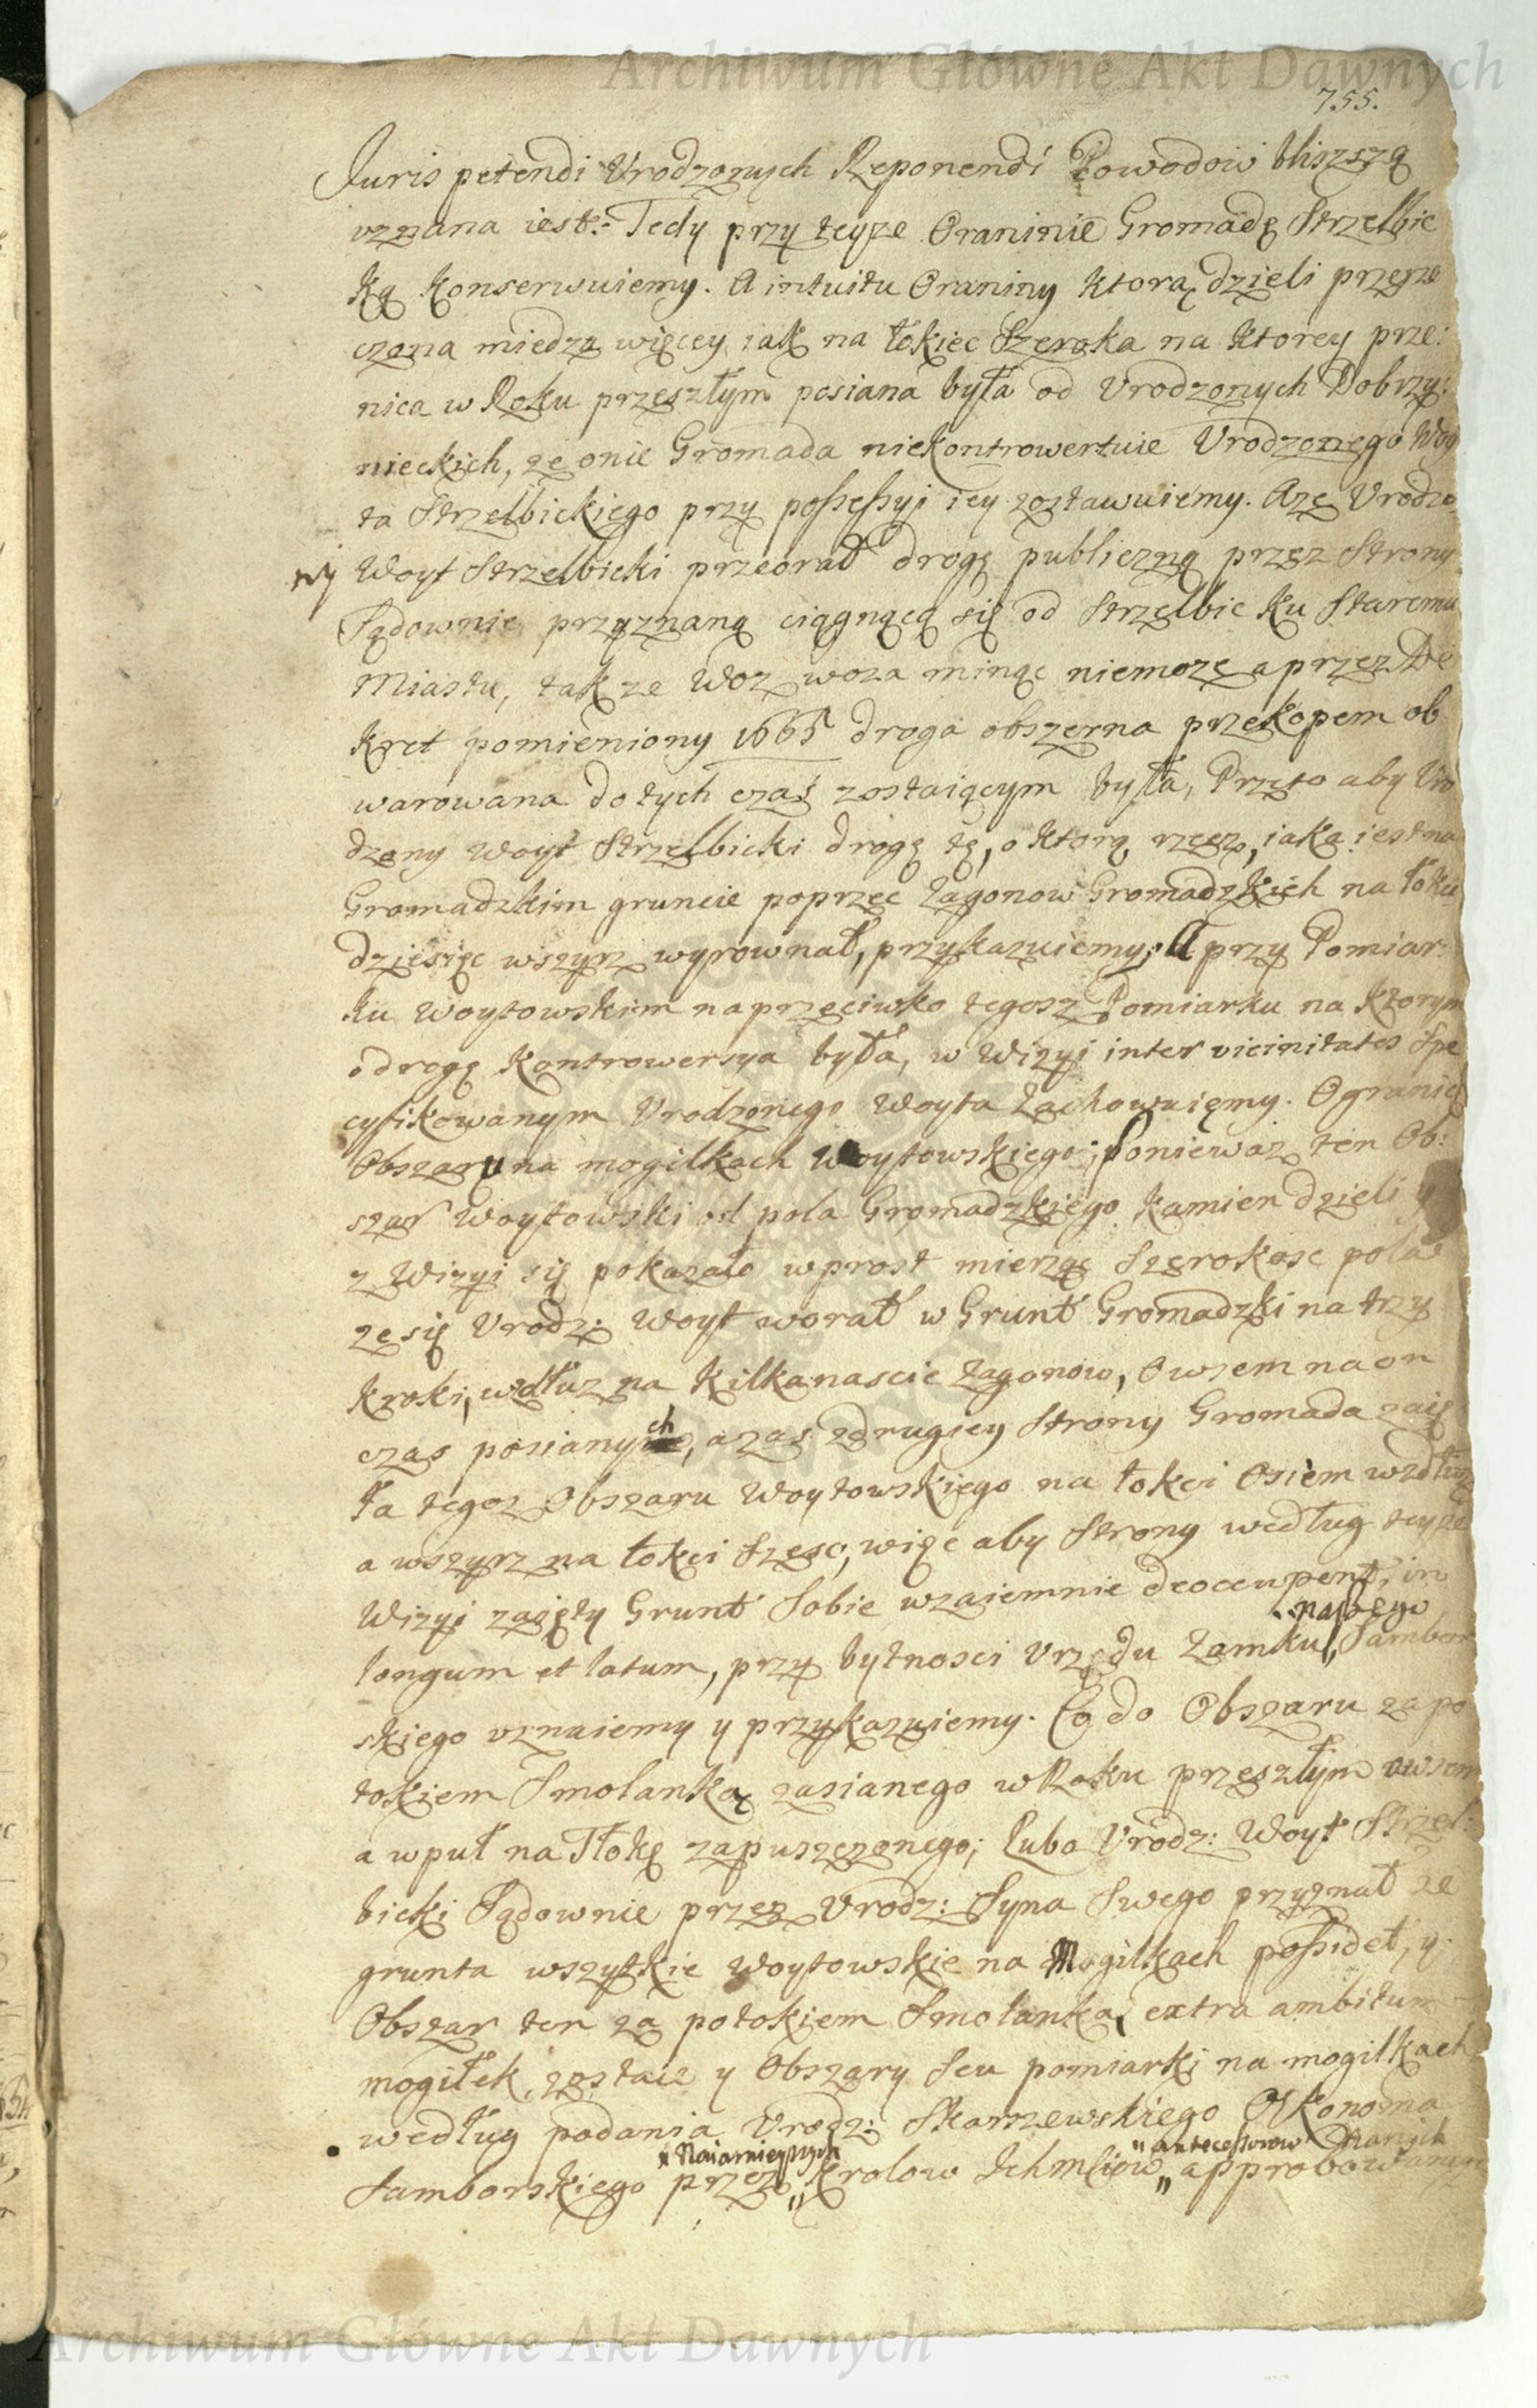 Archiwum Główne Akt Dawnych
755.
Juris petendi Urodzonych Reponendi Powodow bliszszą
uznana iest: Tedy przy teyze Oraninie Gromadę Strzelbic
ką konserwuiemy. A intuitu Oraniny ktorą dzieli przeze
czona miedza więcey iak na łokiec szeroka na ktorey psze:
nica w Roku przeszłym posiana była od Urodzonych Dobrzy:
nieckich, ze onie Gromada niekontrowertuie Urodzonego Woy
ta Strzelbickiego przy possessyi iey zostawuiemy. Aze Urodzo
ny Woyt Strzelbicki przeorał drogę publiczną przez Strony
Sądownie przyznaną ciągnącą się od Strzelbic ku Staremu
Miastu, tak ze Woz woza minąc niemoze a przez De
kret pomieniony 1665 droga obszerna przekopem ob
warowana do tych czas zostaiącym była, Przeto aby Uro
dzony Woyt Strzelbicki drogę tę, o ktorą rzecz, iaka iest na
Gromadzkim gruncie poprzec zagonow Gromadzkich na łokci
dziesięc wszyrz wyrownał, przykazuiemy; A przy Pomiar:
ku Woytowskim naprzeciwko tegosz Pomiarku na ktorym
o drogę kontrowersya była, w Wizyi inter vicinitates Spe
cyfikowanym Urodzonego Woyta zachowuiemy. O granicę
Obszaru na mogilkach Woytowskiego; Poniewaz ten Ob:
szar Woytowski od pola Gromadzkiego kamien dzieli y
z Wizyi się pokazało wprost mierząc Szerokosc pola
ze się Urodz: Woyt worał w Grunt Gromadzki na trzy
kroki, wdłuz na kilkanascie zagonow, Owsem na on
czas posianych, a zas z drugiey strony Gromada zaię
ła tegoz Obszaru Woytowskiego na łokci Osiem wzdłuz
a wszyrz na łokci szesc, więc aby Strony według teyze
Wizyi zaięty Grunt Sobie wzaiemnie deoccupent, in
longum et latum, przy bytnosci Urzędu Zamku naszego Sambor
skiego uznaiemy y przykazuiemy. Co do Obszaru za po
tokiem Smolanką zasianego w Roku przeszłym owsem
a wpuł na Tłokę zapuszczonego; Lubo Urodz: Woyt Strzel:
bicki Sądownie przez Urodz: Syna Swego przyznał ze
grunta wszytkie Woytowskie na Mogiłkach possidet, y
Obszar ten za potokiem Smolanką extra ambitum
mogiłek zostaie y Obszary seu pomiarki na mogilkach
według podania Urodz: Skarszewskiego Ekonoma
Samborskiego przez Naiasnieyszych Krolow Ichmsciow antecessorow Naszych approbowanym
Archiwum Główne Akt Dawnych